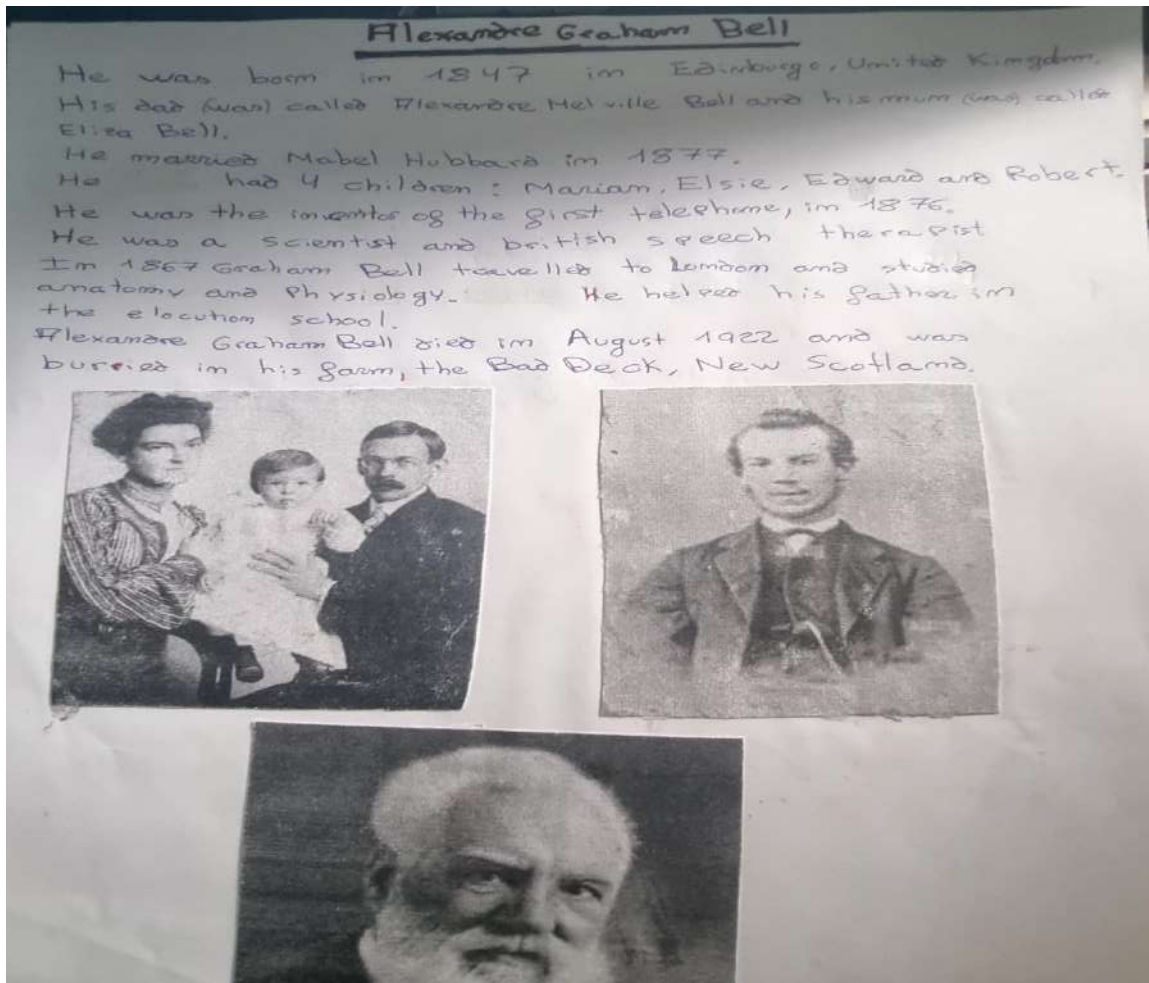 Alexandre Graham Bell
He was born in 1847 in Edinburgo, United Kingdom.
His dad (was) called Alexandre Melville Bell and his mum (was) called
Eliza Bell.
He married Mabel Hubbard in 1877.
He had 4 children: Marian, Elsie, Edward and Robert.
He was the inventor of the first telephone, in 1876.
He was a scientist and british speech therapist
In 1867 Graham Bell travelled to London and studied
anatomy and Physiology. He helped his father in
the elocution school.
Alexandre Graham Bell died in August 1922 and was
burried in his farm, the Bad Deck, New Scotland.